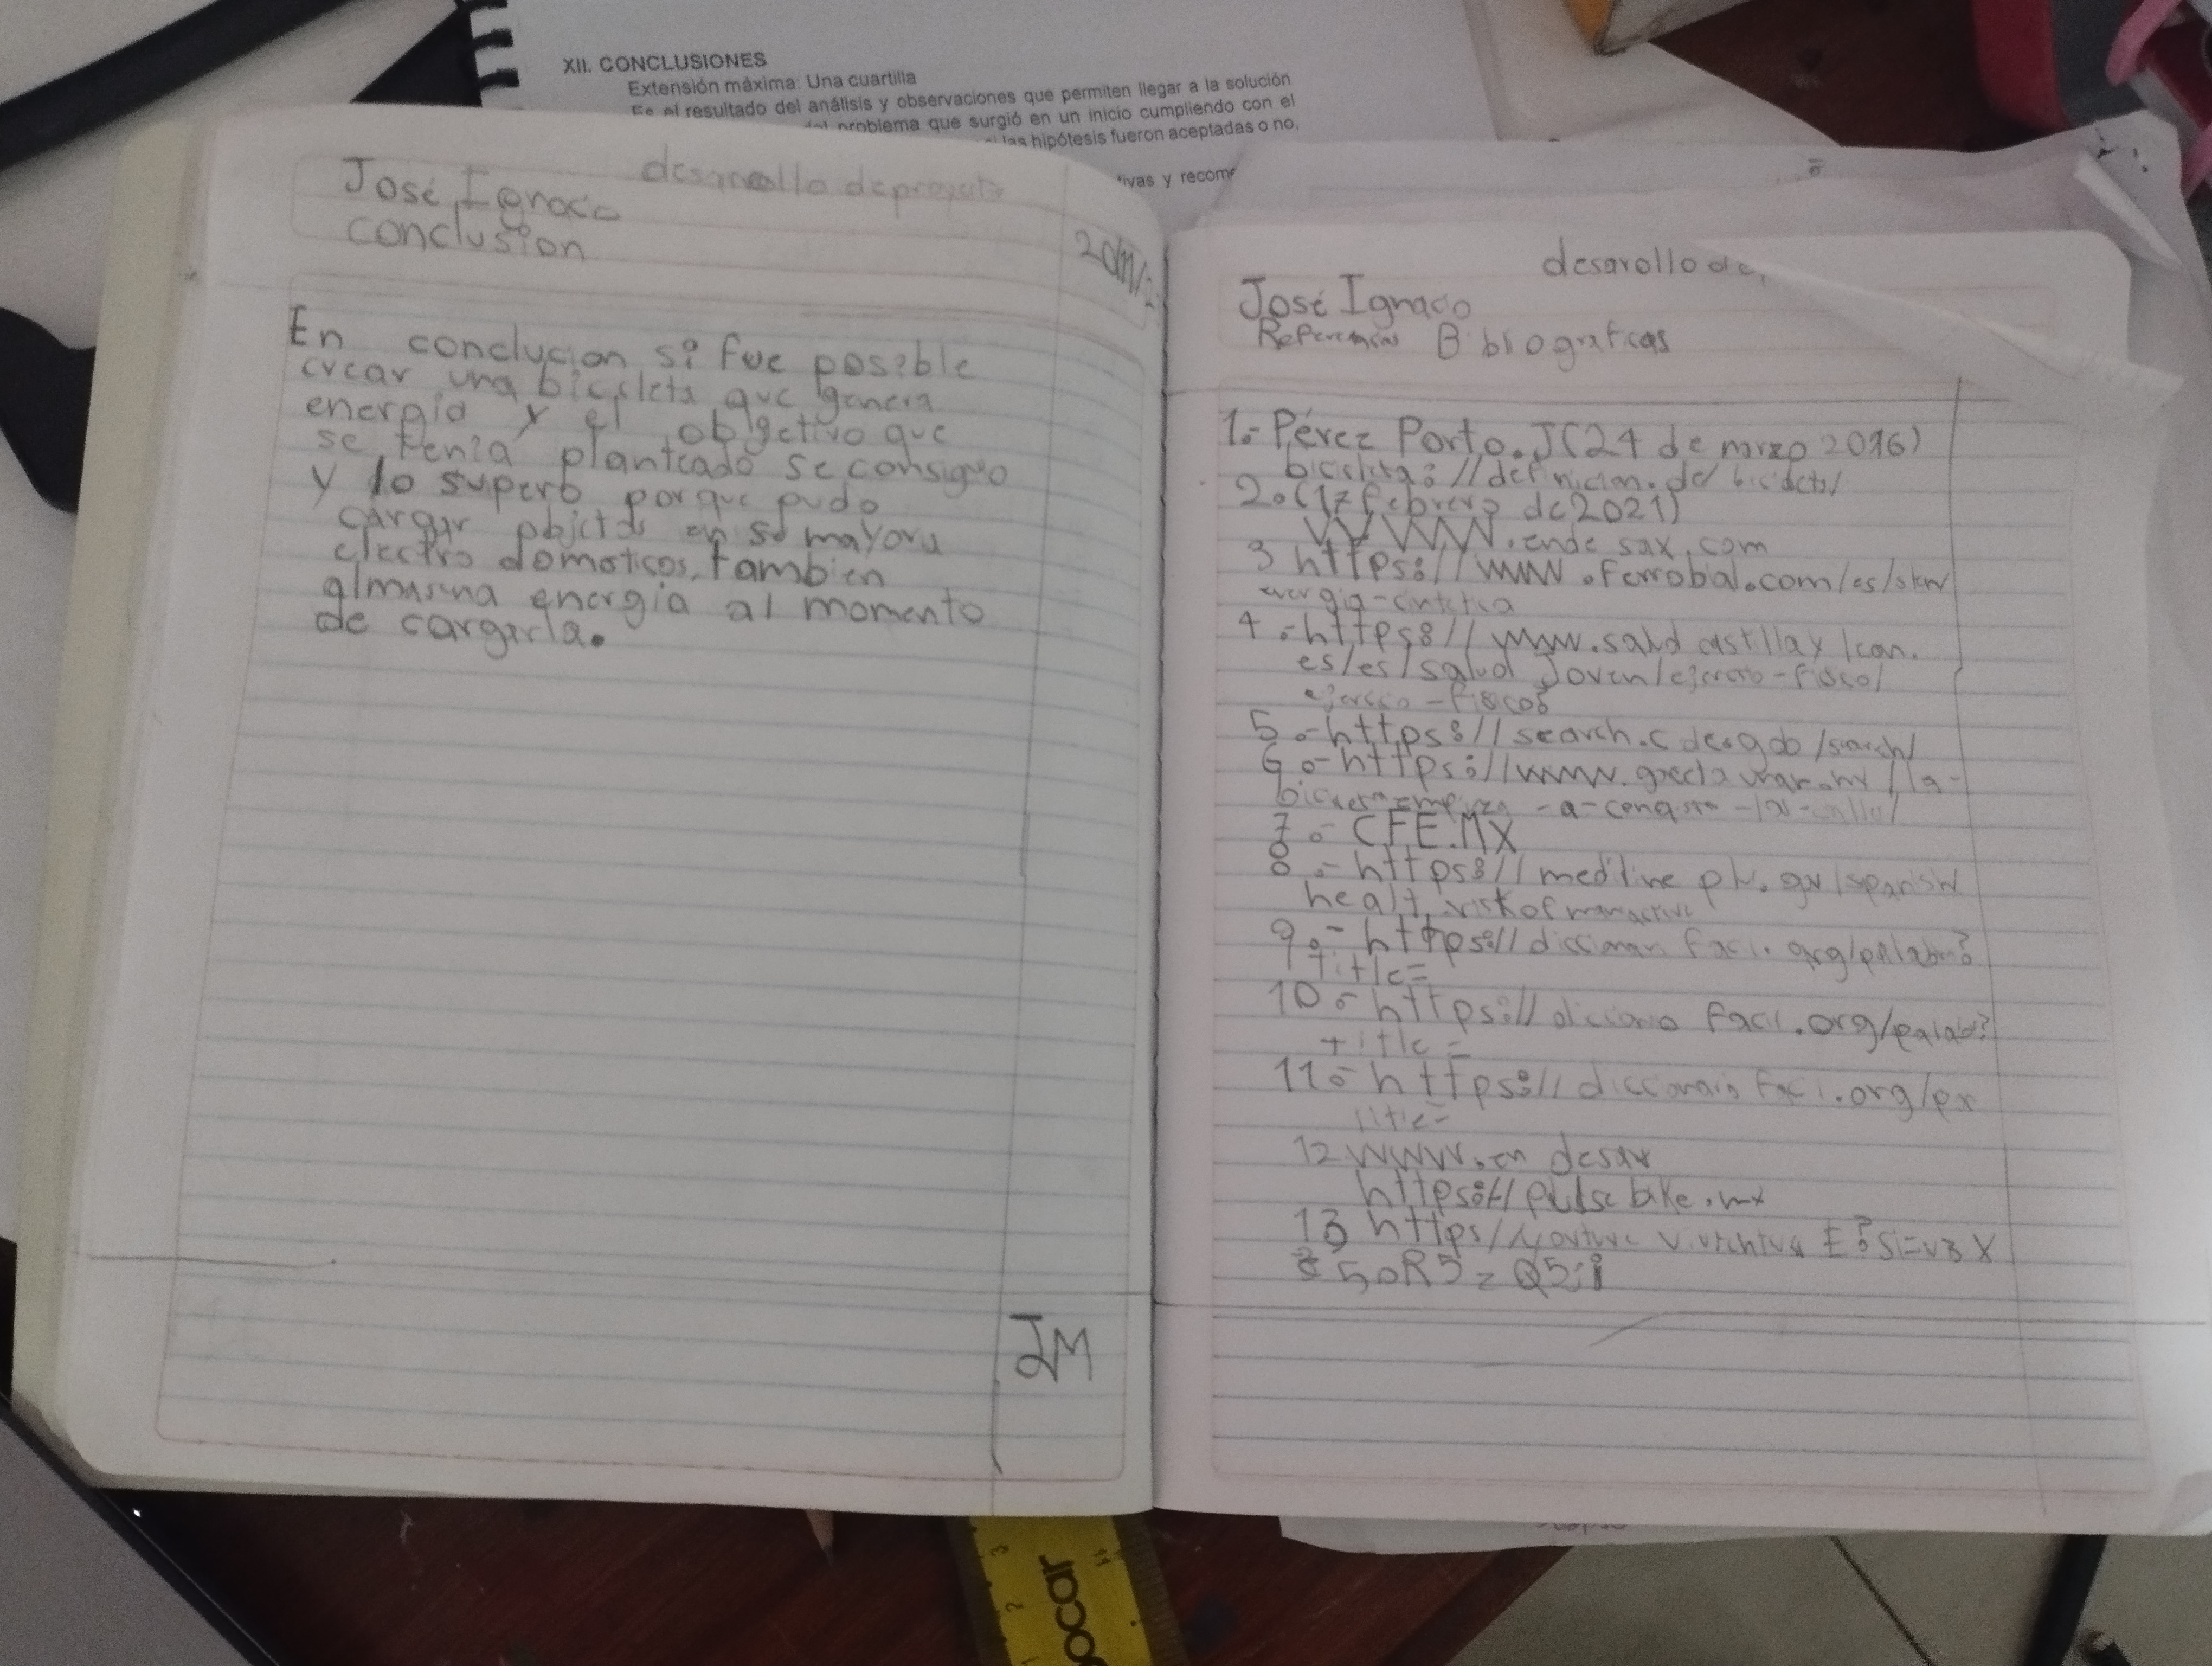 XII. CONCLUSIONES
Extensión máxima: Una cuartilla
Es el resultado del análisis y observaciones que permiten llegar a la solución
del problema que surgió en un inicio cumpliendo con el
las hipótesis fueron aceptadas o no,
tivas y recome
desarrollo de proyecto
José Ignacio
conclusion
20/11/
En conclucion si fue posible
crear una bicicleta que genera
energia y el objetivo que
se tenia planteado se consiguo
y lo supero porque pudo
cargar objetds en su mayoru
electro domoticos, tambien
almasena energia al momento
de cargarla.
JM
desarollo de
José Ignacio
Referencias Bibliograficas
1.- Pérez Porto. J (24 de marzo 2016)
bicicleta: //definicion.de/bicicleta/
2.- (17 febrero de 2021)
WWW.ende sax.com
3 https://www.ferrobal.com/es/
energia-cinetica
4.- https://www.salud castillay lcon.
es/es/salud Joven/ejercicio-fisico/
ejercicio-fisicos
5.- https://search. /search/
6.- https://www. /la-
-a-conquistar-las-calles/
7.- CFE.MX
8.- https://medline /spanish/
healt riskof
9.- https:// facil.org/palabra?
Title=
10.- https:// facil.org/palabra?
title=
11.- https:// facil.org/pa
title=
12 WWW.en desax
https://pulse bike.mx
13 https//
50R5z Q5ii
occar
3
2
1